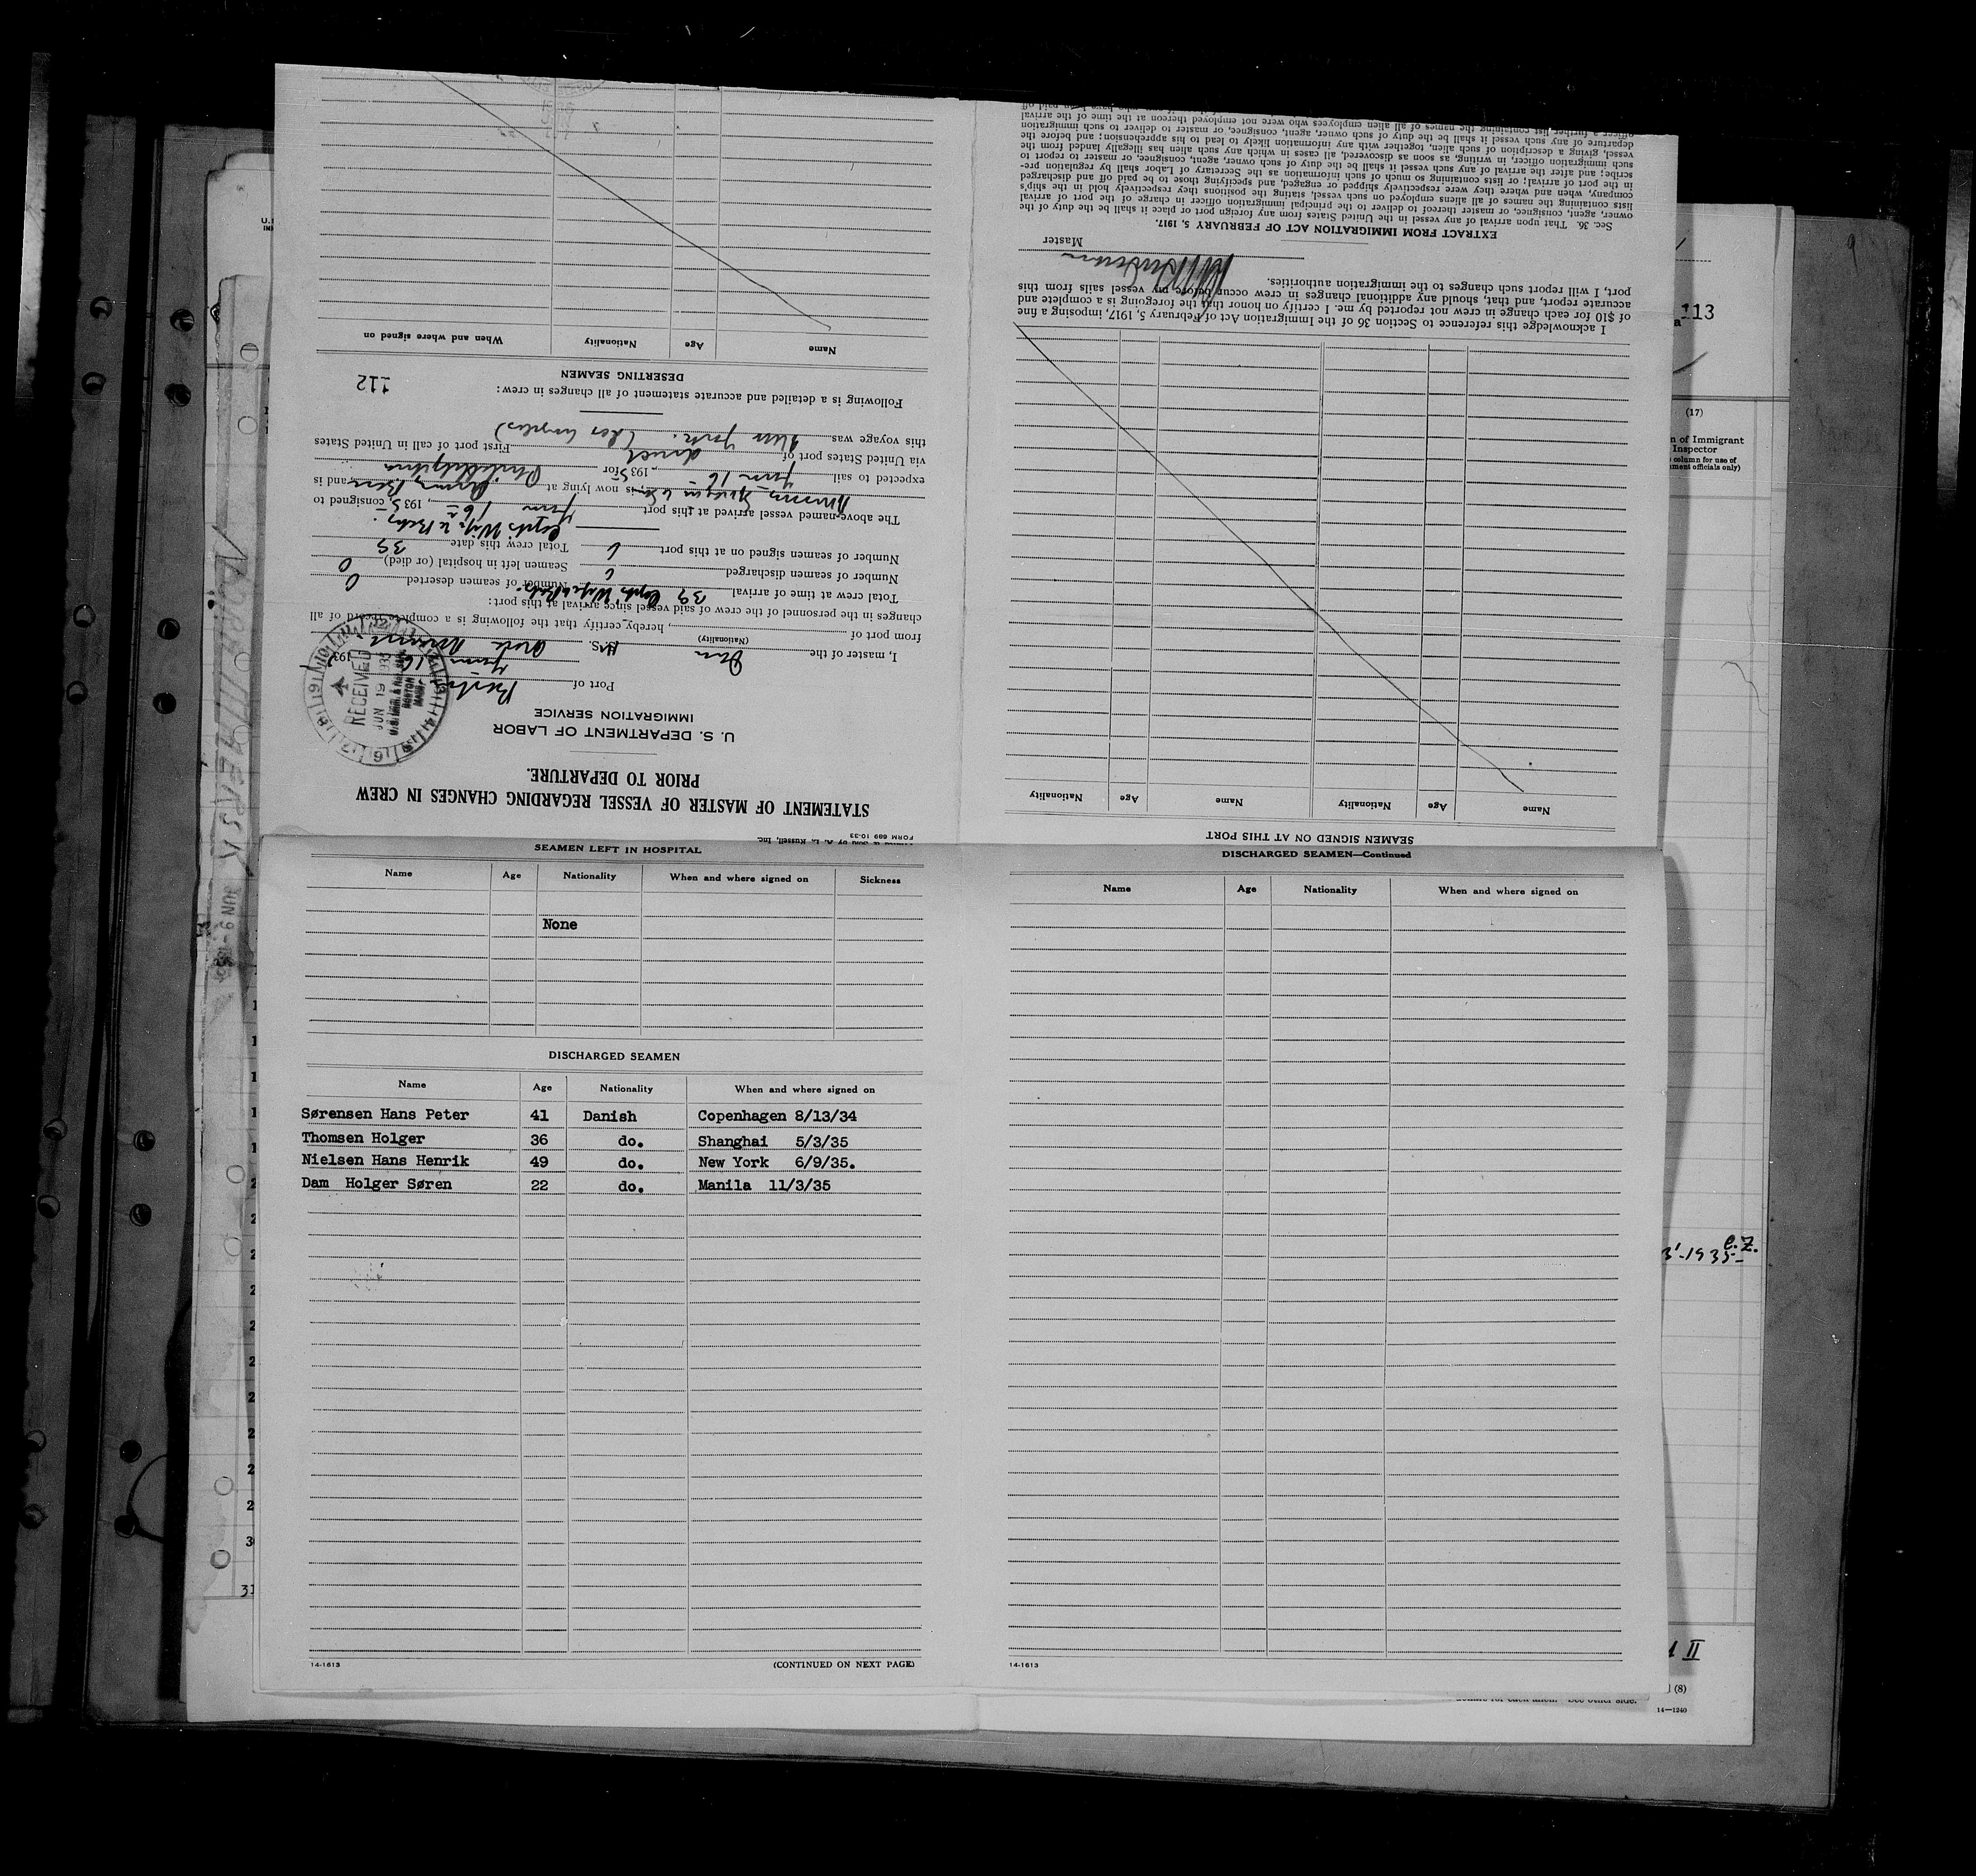 FORM 689 10-33
STATEMENT OF MASTER OF VESSEL REGARDING CHANGES IN CREW
PRIOR TO DEPARTURE.
U. S. DEPARTMENT OF LABOR
IMMIGRATION SERVICE
Port of
RECEIVED
JUN 19 1935
BOSTON
MASS.
I, master of the
(Nationality)
from port of , hereby certify that the following is a complete record of all
changes in the personnel of the crew of said vessel since arrival at this port:
Total crew at time of arrival 39 Number of seamen deserted 0
Number of seamen discharged Seamen left in hospital (or died) 0
Number of seamen signed on at this port Total crew this date 39
The above-named vessel arrived at this port June 16 , 1935, consigned to
is now lying at Army Base and is
expected to sail June 16 , 1935 for Philadelphia
via United States port of direct First port of call in United States
this voyage was New York. (Los Angeles)
Following is a detailed and accurate statement of all changes in crew:
112
DESERTING SEAMEN
Name Age Nationality When and where signed on
SEAMEN SIGNED ON AT THIS PORT
Name Age Nationality Name Age Nationality
I acknowledge this reference to Section 36 of the Immigration Act of February 5, 1917, imposing a fine
of $10 for each change in crew not reported by me. I certify on honor that the foregoing is a complete and
accurate report, and that, should any additional changes in crew occur before my vessel sails from this
port, I will report such changes to the immigration authorities.
Master
EXTRACT FROM IMMIGRATION ACT OF FEBRUARY 5, 1917.
Sec. 36. That upon arrival of any vessel in the United States from any foreign port or place it shall be the duty of the
owner, agent, consignee, or master thereof to deliver to the principal immigration officer in charge of the port of arrival
lists containing the names of all aliens employed on such vessel, stating the positions they respectively hold in the ship's
company, when and where they were respectively shipped or engaged, and specifying those to be paid off and discharged
in the port of arrival; or lists containing so much of such information as the Secretary of Labor shall by regulation pre-
scribe; and after the arrival of any such vessel it shall be the duty of such owner, agent, consignee, or master to report to
such immigration officer, in writing, as soon as discovered, all cases in which any such alien has illegally landed from the
vessel, giving a description of such alien, together with any information likely to lead to his apprehension; and before the
departure of any such vessel it shall be the duty of such owner, agent, consignee, or master to deliver to such immigration
officer a further list containing the names of all alien employees who were not employed thereon at the time of the arrival
SEAMEN LEFT IN HOSPITAL
Name Age Nationality When and where signed on Sickness
None
DISCHARGED SEAMEN
Name Age Nationality When and where signed on
Sørensen Hans Peter 41 Danish Copenhagen 8/13/34
Thomsen Holger 36 do. Shanghai 5/3/35
Nielsen Hans Henrik 49 do. New York 6/9/35.
Dam Holger Søren 22 do. Manila 11/3/35
14-1613
(CONTINUED ON NEXT PAGE)
DISCHARGED SEAMEN—Continued
Name Age Nationality When and where signed on
14-1613
113
(17)
n of Immigrant
Inspector
column for use of
ment officials only)
3'-1935-
e.Z.
II
(8)
See other side.
14—1240
30
31